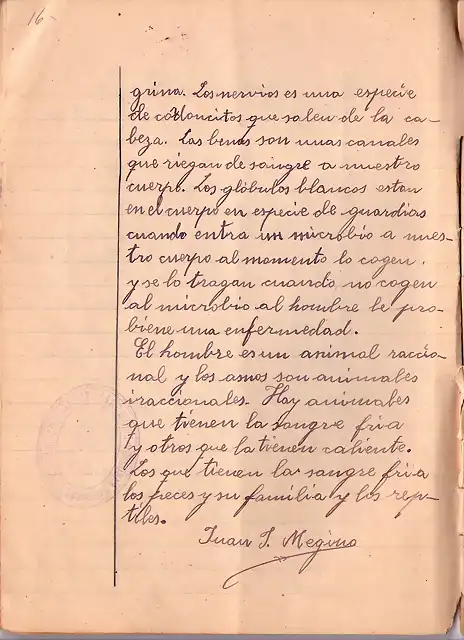 16
grina. Los nervios es una especie
de cordoncitos que salen de la ca-
beza. Las benas son unas canales
que riegan de sangre a nuestro
cuerpo. Los glóbulos blancos estan
en el cuerpo en especie de guardias
cuando entra un microbio a nues-
tro cuerpo al momento lo cogen,
y se lo tragan cuando no cogen
al microbio al hombre le pro-
biene una enfermedad.
El hombre es un animal racio-
nal y los asnos son animales
iraccionales. Hay animales
que tienen la sangre fria
y otros que la tienen caliente.
Los que tienen la sangre fria
los peces y su familia y los rep-
tiles.
Juan J. Megino